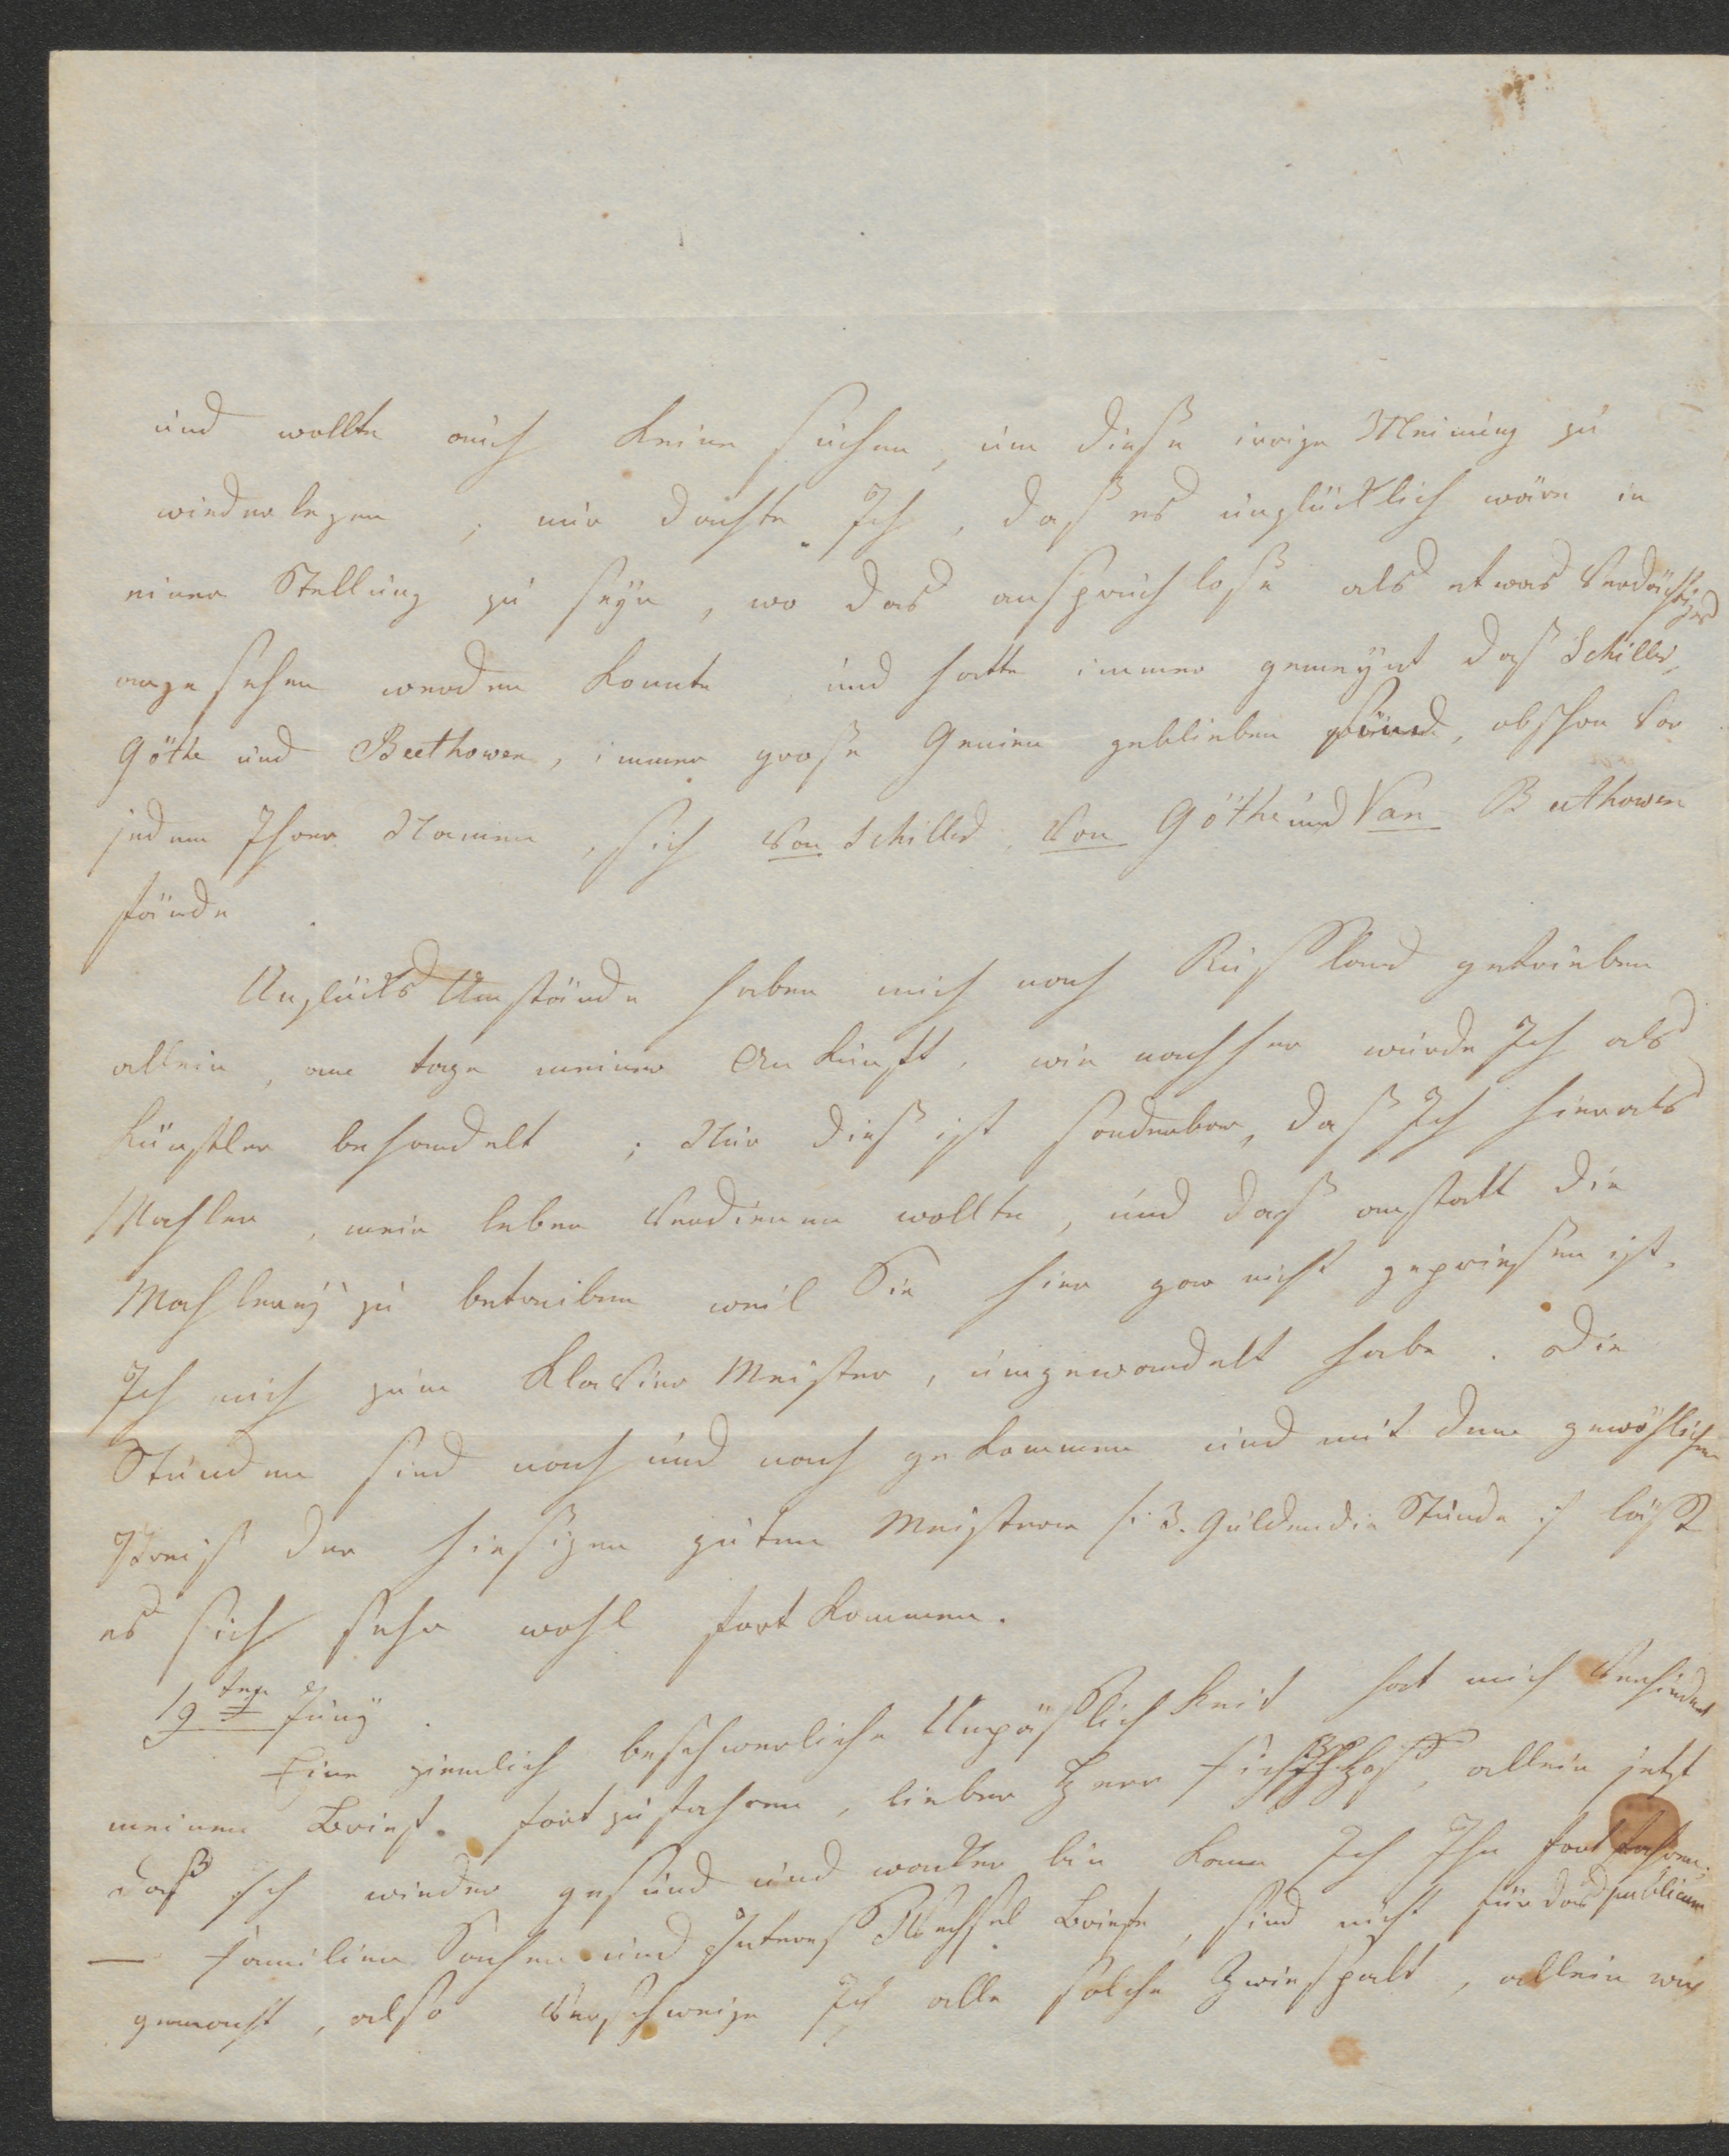 und wollte auch keine suchen, um diese irrige Meinung zu
wiederlegen; mir dachte Ich, daß es unglücklich wäre in
einer Stellung zu seyn, wo das anspruchlose als etwas Verdächtiges
angesehen werden konnte und hatte immer gemeynt daß Schiller,
Göthe und Beethowen, immer große Genien geblieben sind, obschon vor
jedem Ihrer Namen, sich Von Schiller, Von Göthe und Van Beethowen
fände
Unglücks Umstände haben mich nach Russland getrieben
allein, am tage meiner Ankunft, wie nachher wurde Ich als
Künstler behandelt; Nur dieß ist sonderbar, daß Ich hier als
Mahler, mein leben Verdienen wollte, und daß anstatt die
Mahlerey zu betreiben weil Sie hier gar nicht gepriesen ist,
Ich mich zum Klavier Meister, umgewandelt habe. Die
Stunden sind nach und nach gekommen und mit dem gewöhlichen
Preiß der hiesigen guten Meistern /: 3. Gulden die Stunde :/ läßt
es sich sehr wohl fort kommen.
19ten Juny.
Eine ziemlich beschwerliche Unpäßlichkeit hat mich Verhindert
meinen Brief fortzufahren, lieber Herr allein jetzt
daß Ich wieder gesund und wacker bin kann Ich Ihn fortfahren.
— familien Sachen und Interess Wechsel Briefe, sind nicht für das publicum
gemacht, also Verschweige Ich alle solche Zwiespalt, allein was